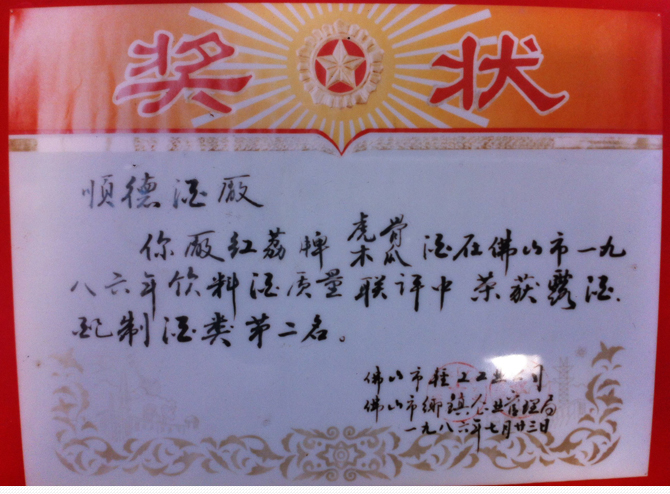 奖状
順德酒厰
你厰红荔牌虎骨木瓜酒在佛山市一九
八六年饮料酒质量联评中荣获露酒、
配制酒类第二名。
佛山市轻工工业公司
佛山市鄉镇企业管理局
一九八六年七月廿三日